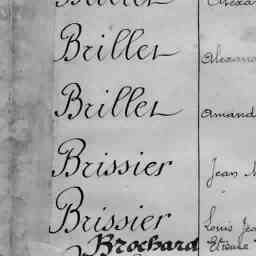 Brillet
Brillet Alexand
Brillet Amand
Brissier Jean
Brissier Louis Jea
Brochard Etienne